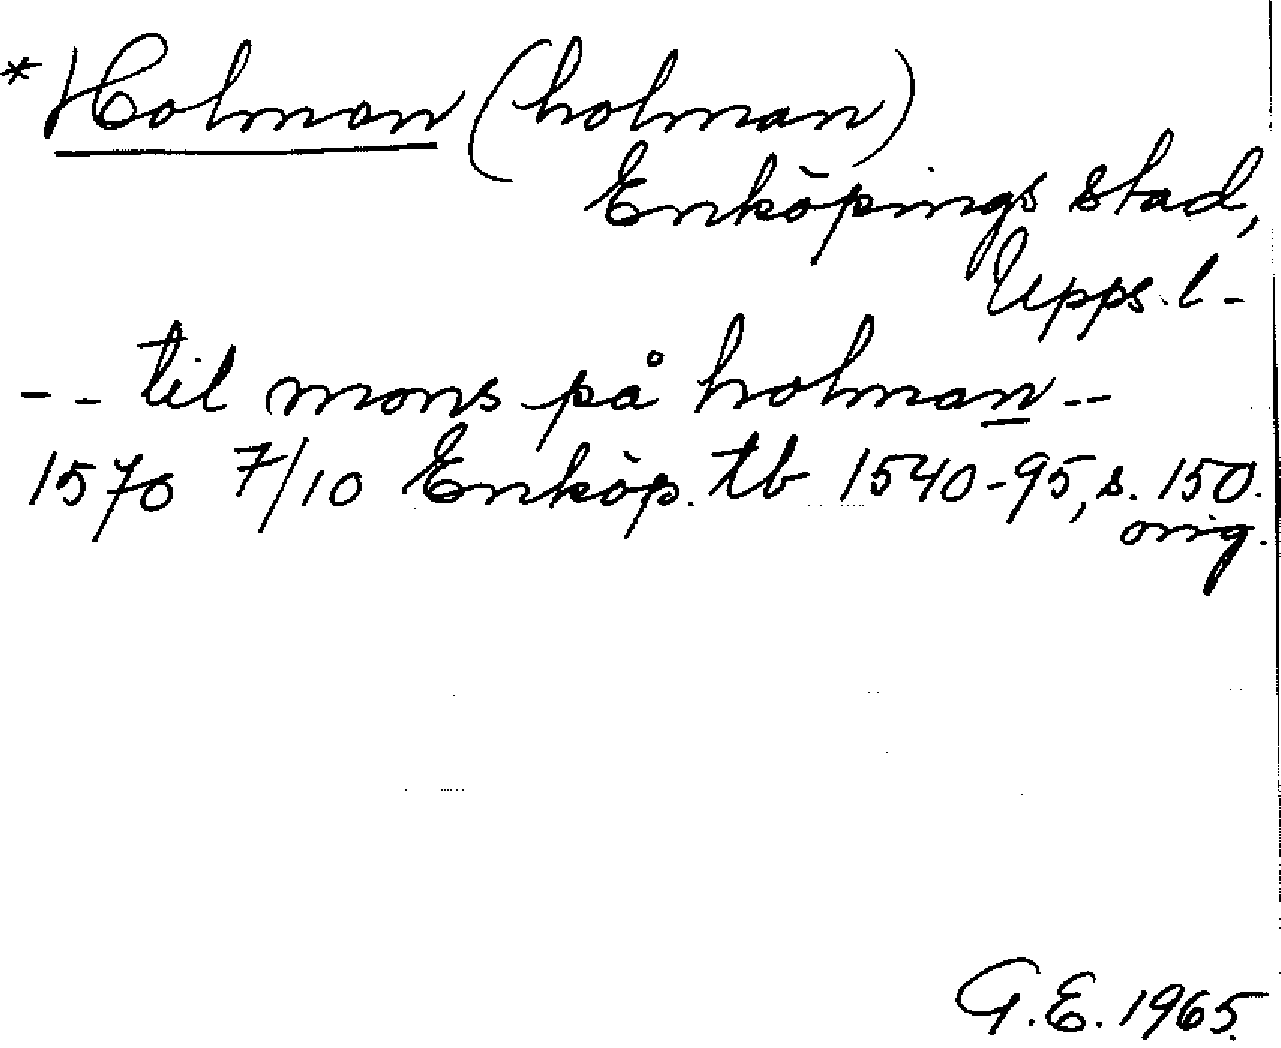 *Holmon (holman)
Enköpings stad,
Upps. l -
-- til mons på holman --
1570 7/10 Enköp. tb 1540-95, s. 150.
orig.
G.E. 1965.